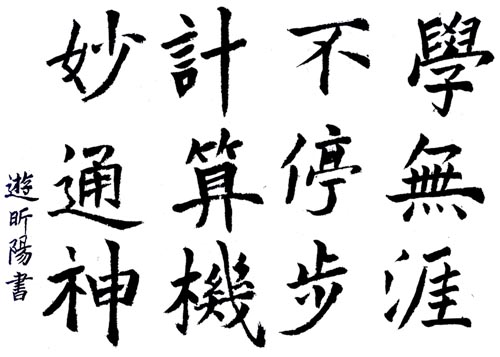 學無涯
不停步
計算機
妙通神
遊昕陽書